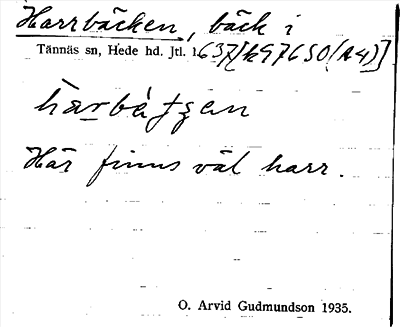 Harrbäcken, bäck i
Tännäs sn, Hede hd. Jtl.
harbätʒen
Här finns väl harr.
O. Arvid Gudmundson 1935.